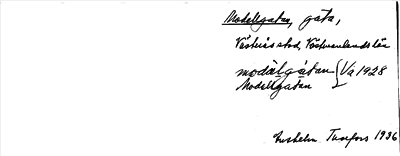 Modellgatan, gata,
Västerås stad, Västmanlands län
modälgátan } Vä 1928
Modellgatan
Tunefors 1936